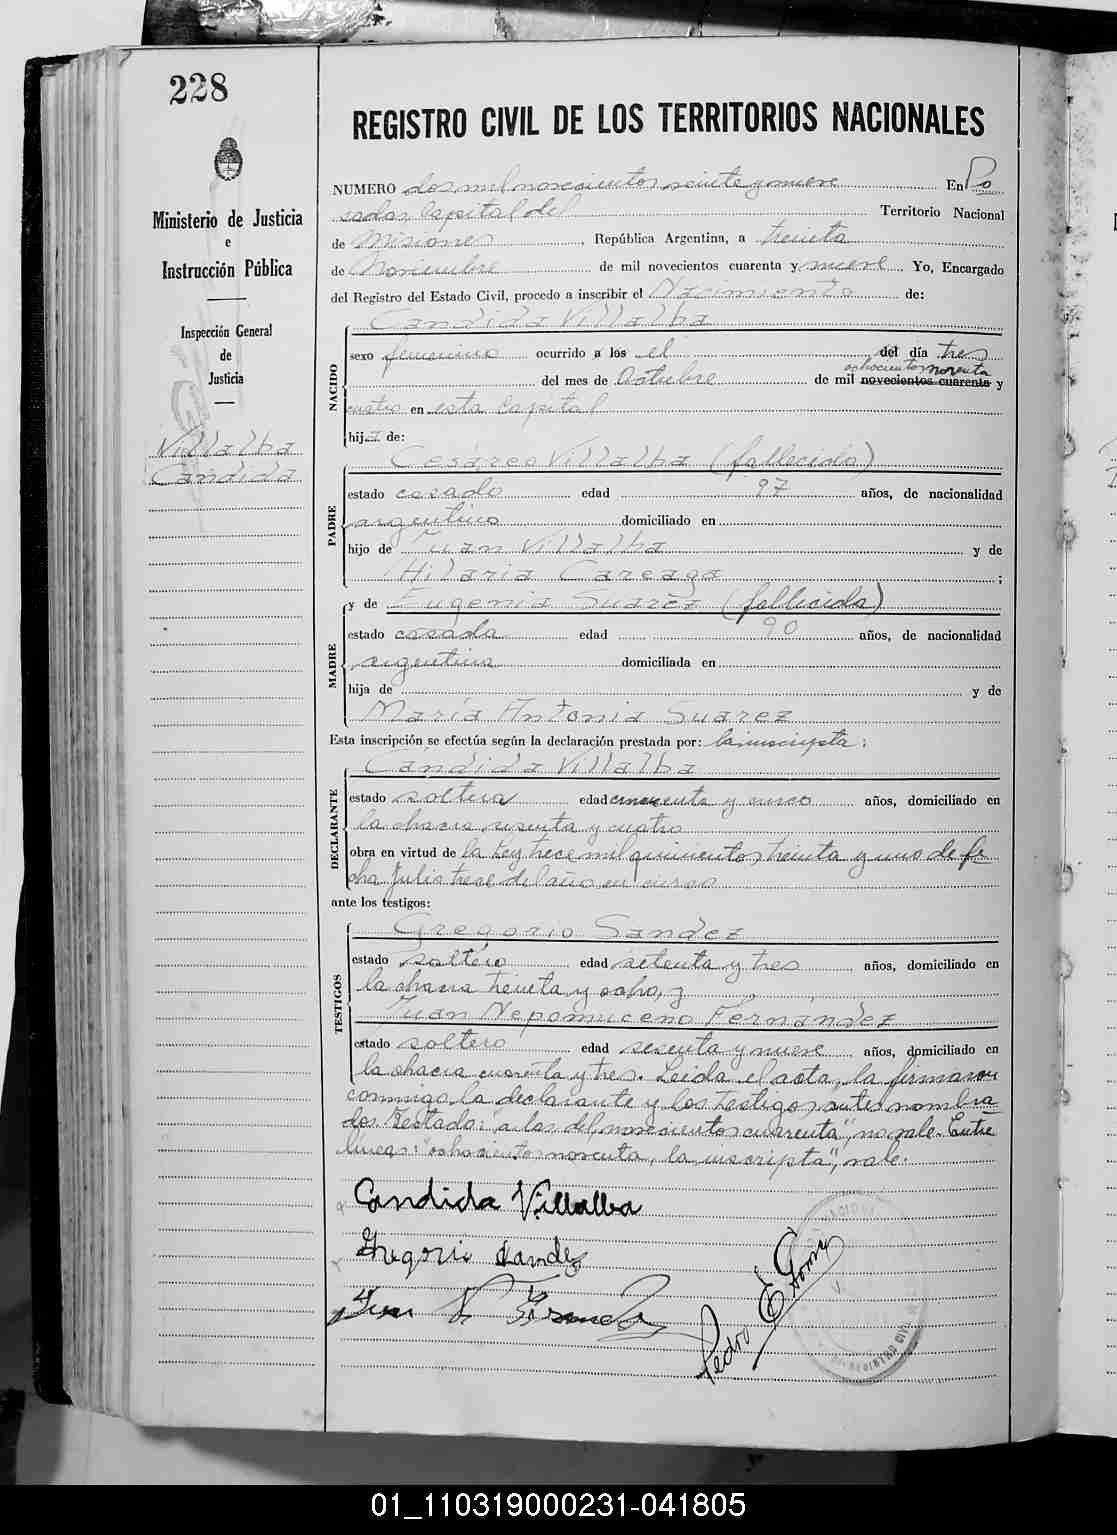 228
Ministerio de Justicia
e
Instrucción Pública
Inspección General
de
Justicia
Villalba
Candida
REGISTRO CIVIL DE LOS TERRITORIOS NACIONALES
NUMERO dos mil novecientos veinte y nueve En Po
sadas Capital del Territorio Nacional
de Misiones, República Argentina, a treinta
de Noviembre de mil novecientos cuarenta y nueve. Yo, Encargado
del Registro del Estado Civil, procedo a inscribir el Nacimiento de:
NACIDO
Candida Villalba
sexo femenino ocurrido a los el del día tres
ochocientos noventa
del mes de Octubre de mil novecientos cuarenta y
cuatro en esta Capital
hija de:
PADRE
Cesáreo Villalba (fallecido)
estado casado edad 97 años, de nacionalidad
argentino domiciliado en
hijo de Juan Villalba y de
Hilaria Careaga;
MADRE
y de Eugenia Suarez (fallecida)
estado casada edad 90 años, de nacionalidad
argentina domiciliada en
hija de y de
María Antonia Suarez
Esta inscripción se efectúa según la declaración prestada por: la inscripta:
DECLARANTE
Candida Villalba
estado soltera edad cincuenta y cinco años, domiciliado en
la chacra sesenta y cuatro
obra en virtud de la Ley trece mil quinientos treinta y uno de fe
cha Julio trece del año en curso
ante los testigos:
TESTIGOS
Gregorio Sandez
estado soltero edad setenta y tres años, domiciliado en
la chacra treinta y ocho, y
Juan Nepomuceno Fernandez
estado soltero edad sesenta y nueve años, domiciliado en
la chacra cuarenta y tres. Leida el acta, la firmaron
conmigo, la declarante y los testigos antes nombra
dos. Testado: "a los del novecientos cuarenta", no vale. Entre
lineas: "ochocientos noventa, la inscripta", vale.
Candida Villalba
Gregorio Sandez
Juan N Fernandez
Pedro E
REGISTRO CIVIL
01_110319000231-041805